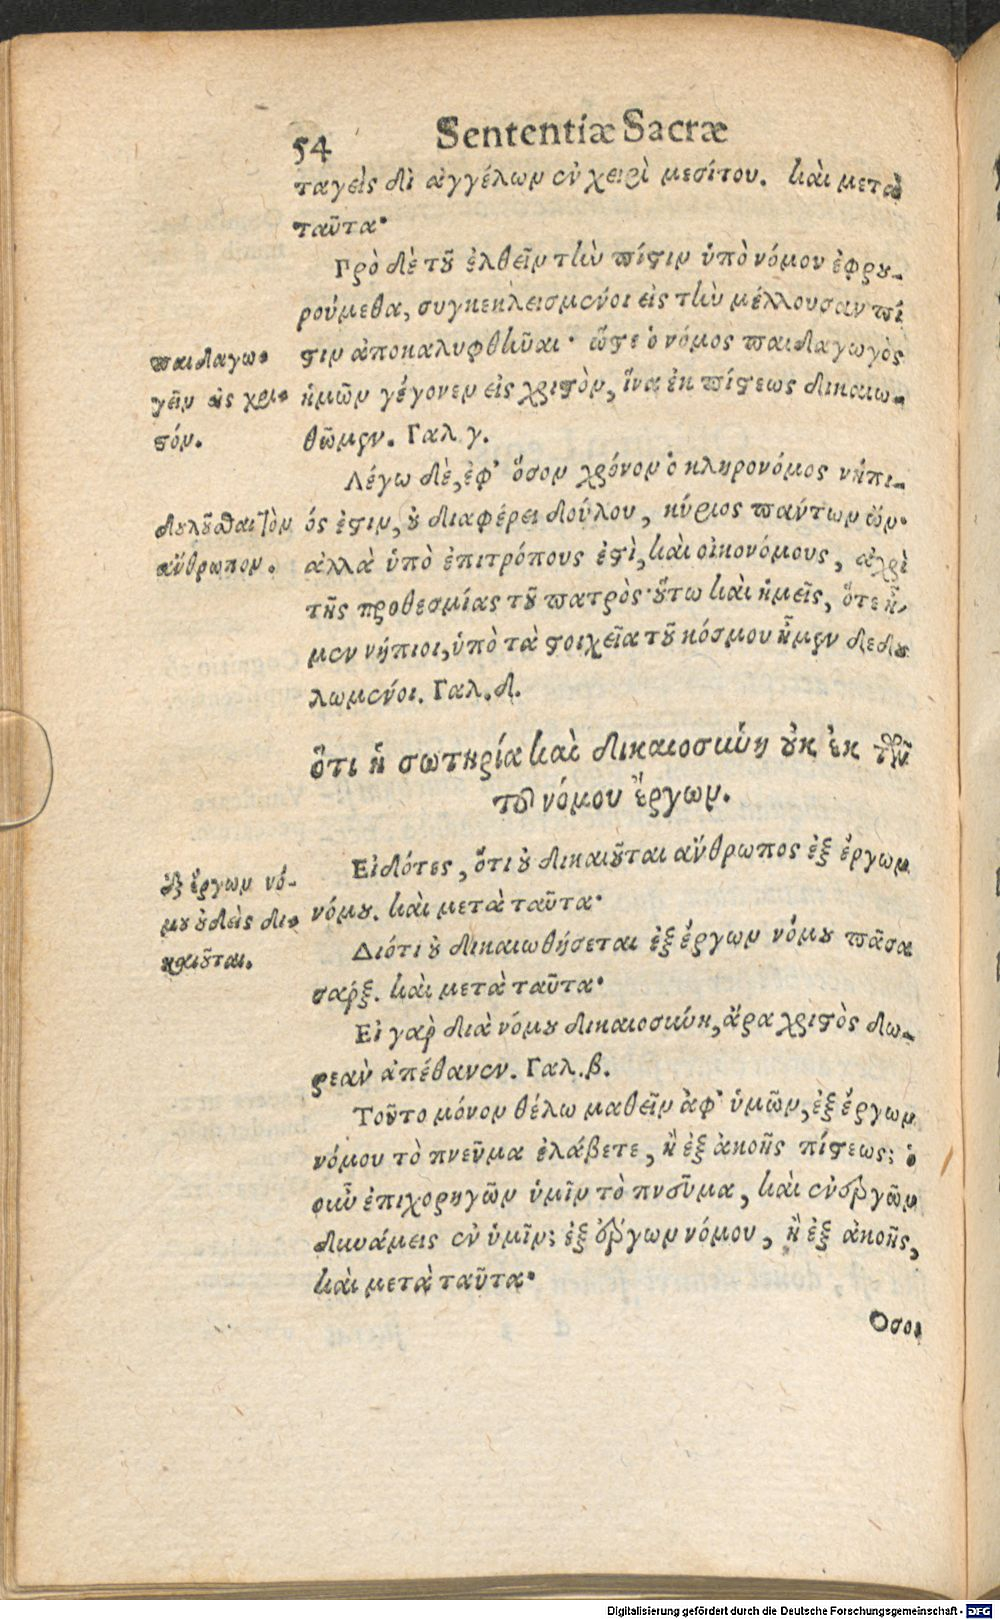 54 Sententiæ Sacræ
ταγεὶς δι ἀγγέλων ἐν χειρὶ μεσίτου. καὶ μετὰ
ταῦτα·
Πρὸ δὲ τοῦ ἐλθεῖν τὴν πίστιν ὑπὸ νόμον ἐφρου-
ρούμεθα, συγκεκλεισμένοι εἰς τὴν μέλλουσαν πί
στιν ἀποκαλυφθῆναι· ὥστε ὁ νόμος παιδαγωγὸς
ἡμῶν γέγονεν εἰς χριστὸν, ἵνα ἐκ πίστεως δικαιω-
θῶμεν. Γαλ γ.
παιδαγω-
γεῖν εἰς χρι-
στόν.
Λέγω δὲ, ἐφ' ὅσον χρόνον ὁ κληρονόμος νήπι-
ός ἐστιν, οὐ διαφέρει δούλου, κύριος πάντων ὤν·
ἀλλὰ ὑπὸ ἐπιτρόπους ἐστὶ, καὶ οἰκονόμους, ἀχρὶ
τῆς προθεσμίας τοῦ πατρὸς· οὕτω καὶ ἡμεῖς, ὅτε ἦ-
μεν νήπιοι, ὑπὸ τὰ στοιχεῖα τοῦ κόσμου ἦμεν δεδου
λωμένοι. Γαλ. δ.
δουλοῦσθαι τὸν
ἄνθρωπον.
ὅτι ἡ σωτηρία καὶ δικαιοσύνη οὐκ ἐκ τῶν
τοῦ νόμου ἔργων.
Εἰδότες, ὅτι οὐ δικαιοῦται ἄνθρωπος ἐξ ἔργων
νόμου. καὶ μετὰ ταῦτα·
ἐξ ἔργων νό-
μου οὐδεὶς δι-
καιοῦται.
Διότι οὐ δικαιωθήσεται ἐξ ἔργων νόμου πᾶσα
σάρξ. καὶ μετὰ ταῦτα·
Εἰ γὰρ διὰ νόμου δικαιοσύνη, ἄρα χριστὸς δω-
ρεὰν ἀπέθανεν. Γαλ. β.
Τοῦτο μόνον θέλω μαθεῖν ἀφ' ὑμῶν, ἐξ ἔργων
νόμου τὸ πνεῦμα ἐλάβετε, ἢ ἐξ ἀκοῆς πίστεως; ὁ
οὖν ἐπιχορηγῶν ὑμῖν τὸ πνεῦμα, καὶ ἐνεργῶν
δυνάμεις ἐν ὑμῖν; ἐξ ἔργων νόμου, ἢ ἐξ ἀκοῆς,
καὶ μετὰ ταῦτα·
Οσοι
Digitalisierung gefördert durch die Deutsche Forschungsgemeinschaft - DFG